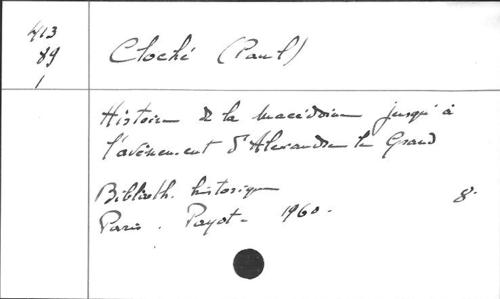 413
89
1
Cloché (Paul)
Histoire de la Macédoine jusqu'à
l'avènement d'Alexandre le Grand
Biblioth. historique
Paris. Payot - 1960.
8°